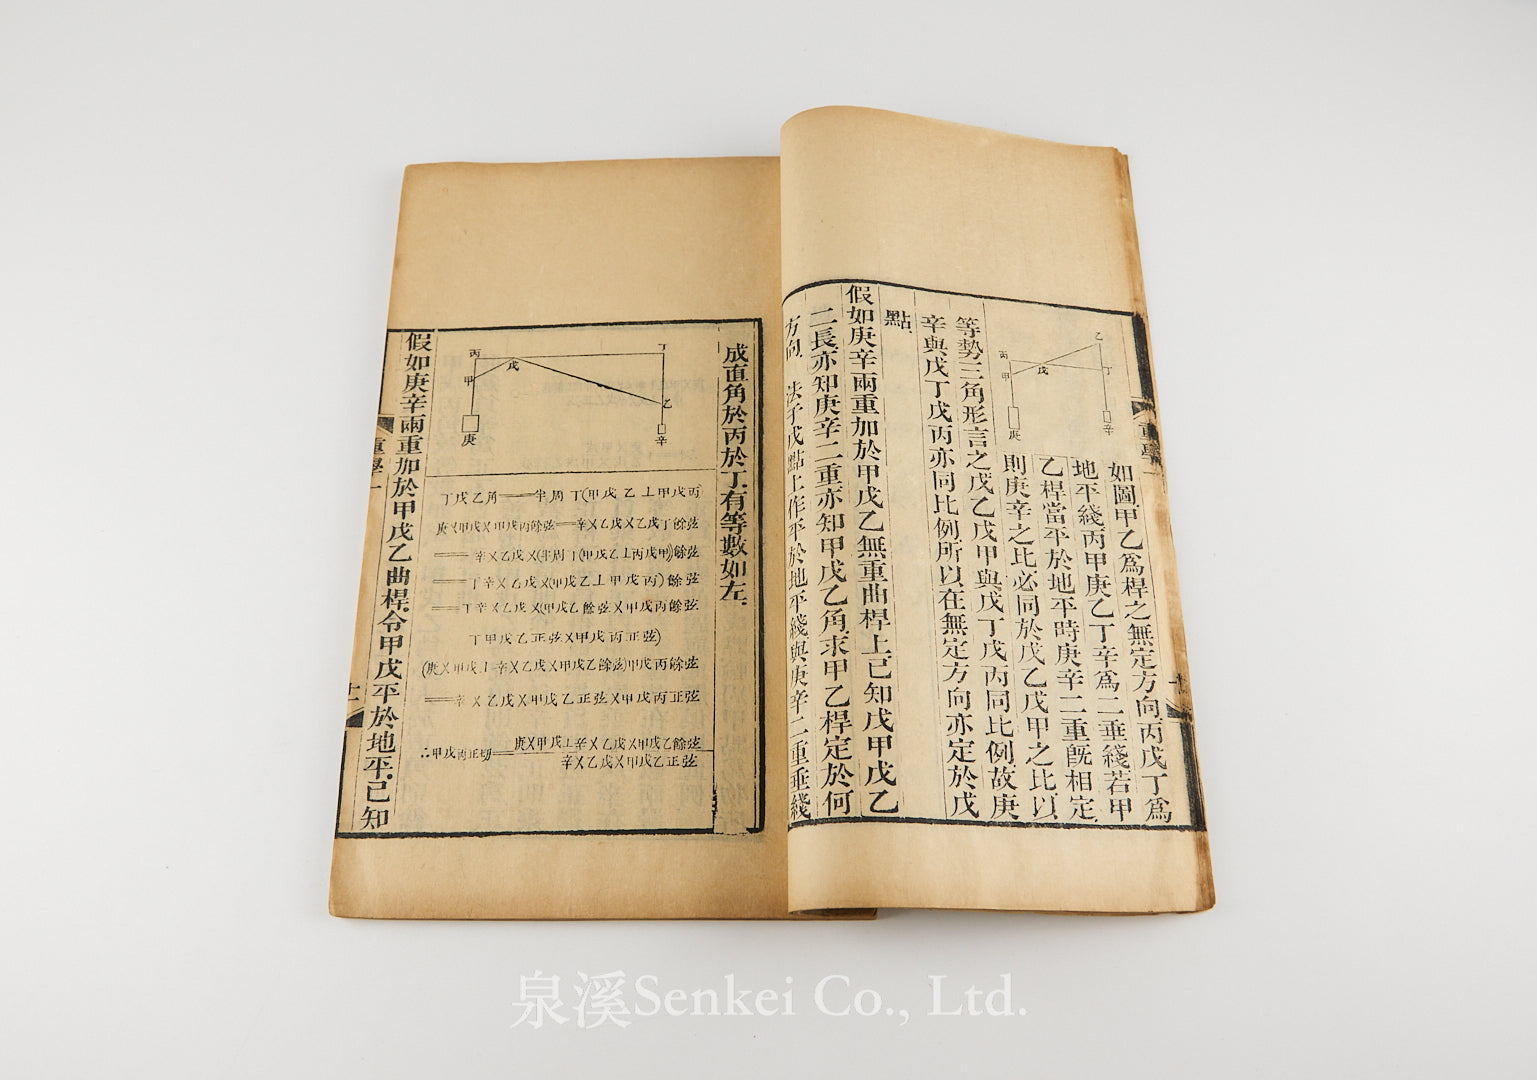 乙
丙
丁
甲
戊
庚
辛
如圖甲乙爲桿之無定方向丙戊丁爲
地平綫丙甲庚乙丁辛爲二垂綫若甲
乙桿當平於地平時庚辛二重旣相定
則庚辛之比必同於戊乙戊甲之比以
等勢三角形言之戊乙戊甲與戊丁戊丙同比例故庚
辛與戊丁戊丙亦同比例所以在無定方向亦定於戊
點
假如庚辛兩重加於甲戊乙無重曲桿上已知戊甲戊乙
二長亦知庚辛二重亦知甲戊乙角求甲乙桿定於何
方向 法于戊點上作平於地平綫與庚辛二重垂綫
重學一
成直角於丙於丁有等數如左
丙
丁
戊
甲
乙
庚
辛
丁戊乙角══半周丅(甲戊乙丄甲戊丙)
庚乂甲戊乂甲戊丙餘弦══辛乂乙戊乂乙戊丁餘弦
══辛乂乙戊乂(半周丅(甲戊乙丄丙戊甲))餘弦
══丅辛乂乙戊乂(甲戊乙丄甲戊丙)餘弦
══丅辛乂乙戊乂(甲戊乙餘弦乂甲戊丙餘弦
丅甲戊乙正弦乂甲戊丙正弦)
(庚乂甲戊丄辛乂乙戊乂甲戊乙餘弦)甲戊丙餘弦
══辛乂乙戊乂甲戊乙正弦乂甲戊丙正弦
∴甲戊丙正切══庚乂甲戊丄辛乂乙戊乂甲戊乙餘弦
辛乂乙戊乂甲戊乙正弦
假如庚辛兩重加於甲戊乙曲桿令甲戊平於地平已知
重學一
十一
泉溪Senkei Co., Ltd.